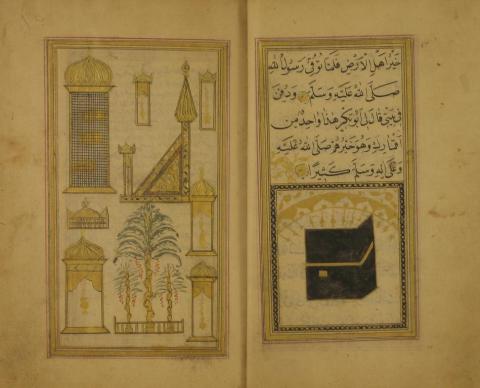 خَيْرُ اَهْلِ الْاَرْضِ فَلَمَّا تُوُفِّيَ رَسُولُ اللهِ
صَلَّى اللهُ عَلَيْهِ وَسَلَّمَ وَدُفِنَ
فِي بَيْتِي قَالَ لِي اَبُو بَكْرٍ هٰذَا وَاحِدٌ مِنْ
اَقْمَارِكِ وَهُوَ خَيْرُهُمْ صَلَّى اللهُ عَلَيْهِ
وَعَلٰى اٰلِهِ وَسَلَّمَ كَثِيرًا